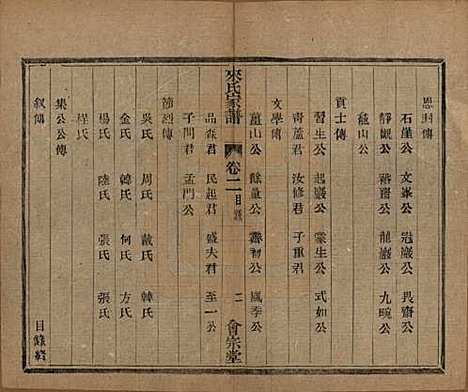 恩封傳
石崖公 文峯公 冠巖公 畏齋公
靜觀公 龍巖公 九畹公
龜山公
貢士傳
習生公 起巖公 裳生公 式如公
青蘆君 汝修君 子重君
文學傳
龍山公 餘量公 公 風季公
品森君 民起君 盛夫君 至一公
子問君 孟門公
來氏家譜 卷二目錄 二 會宗堂
節烈傳
吳氏 周氏 戴氏 韓氏
金氏 韓氏 何氏 方氏
楊氏 陸氏 張氏 張氏
程氏
集公公傳
叙傳
目錄終